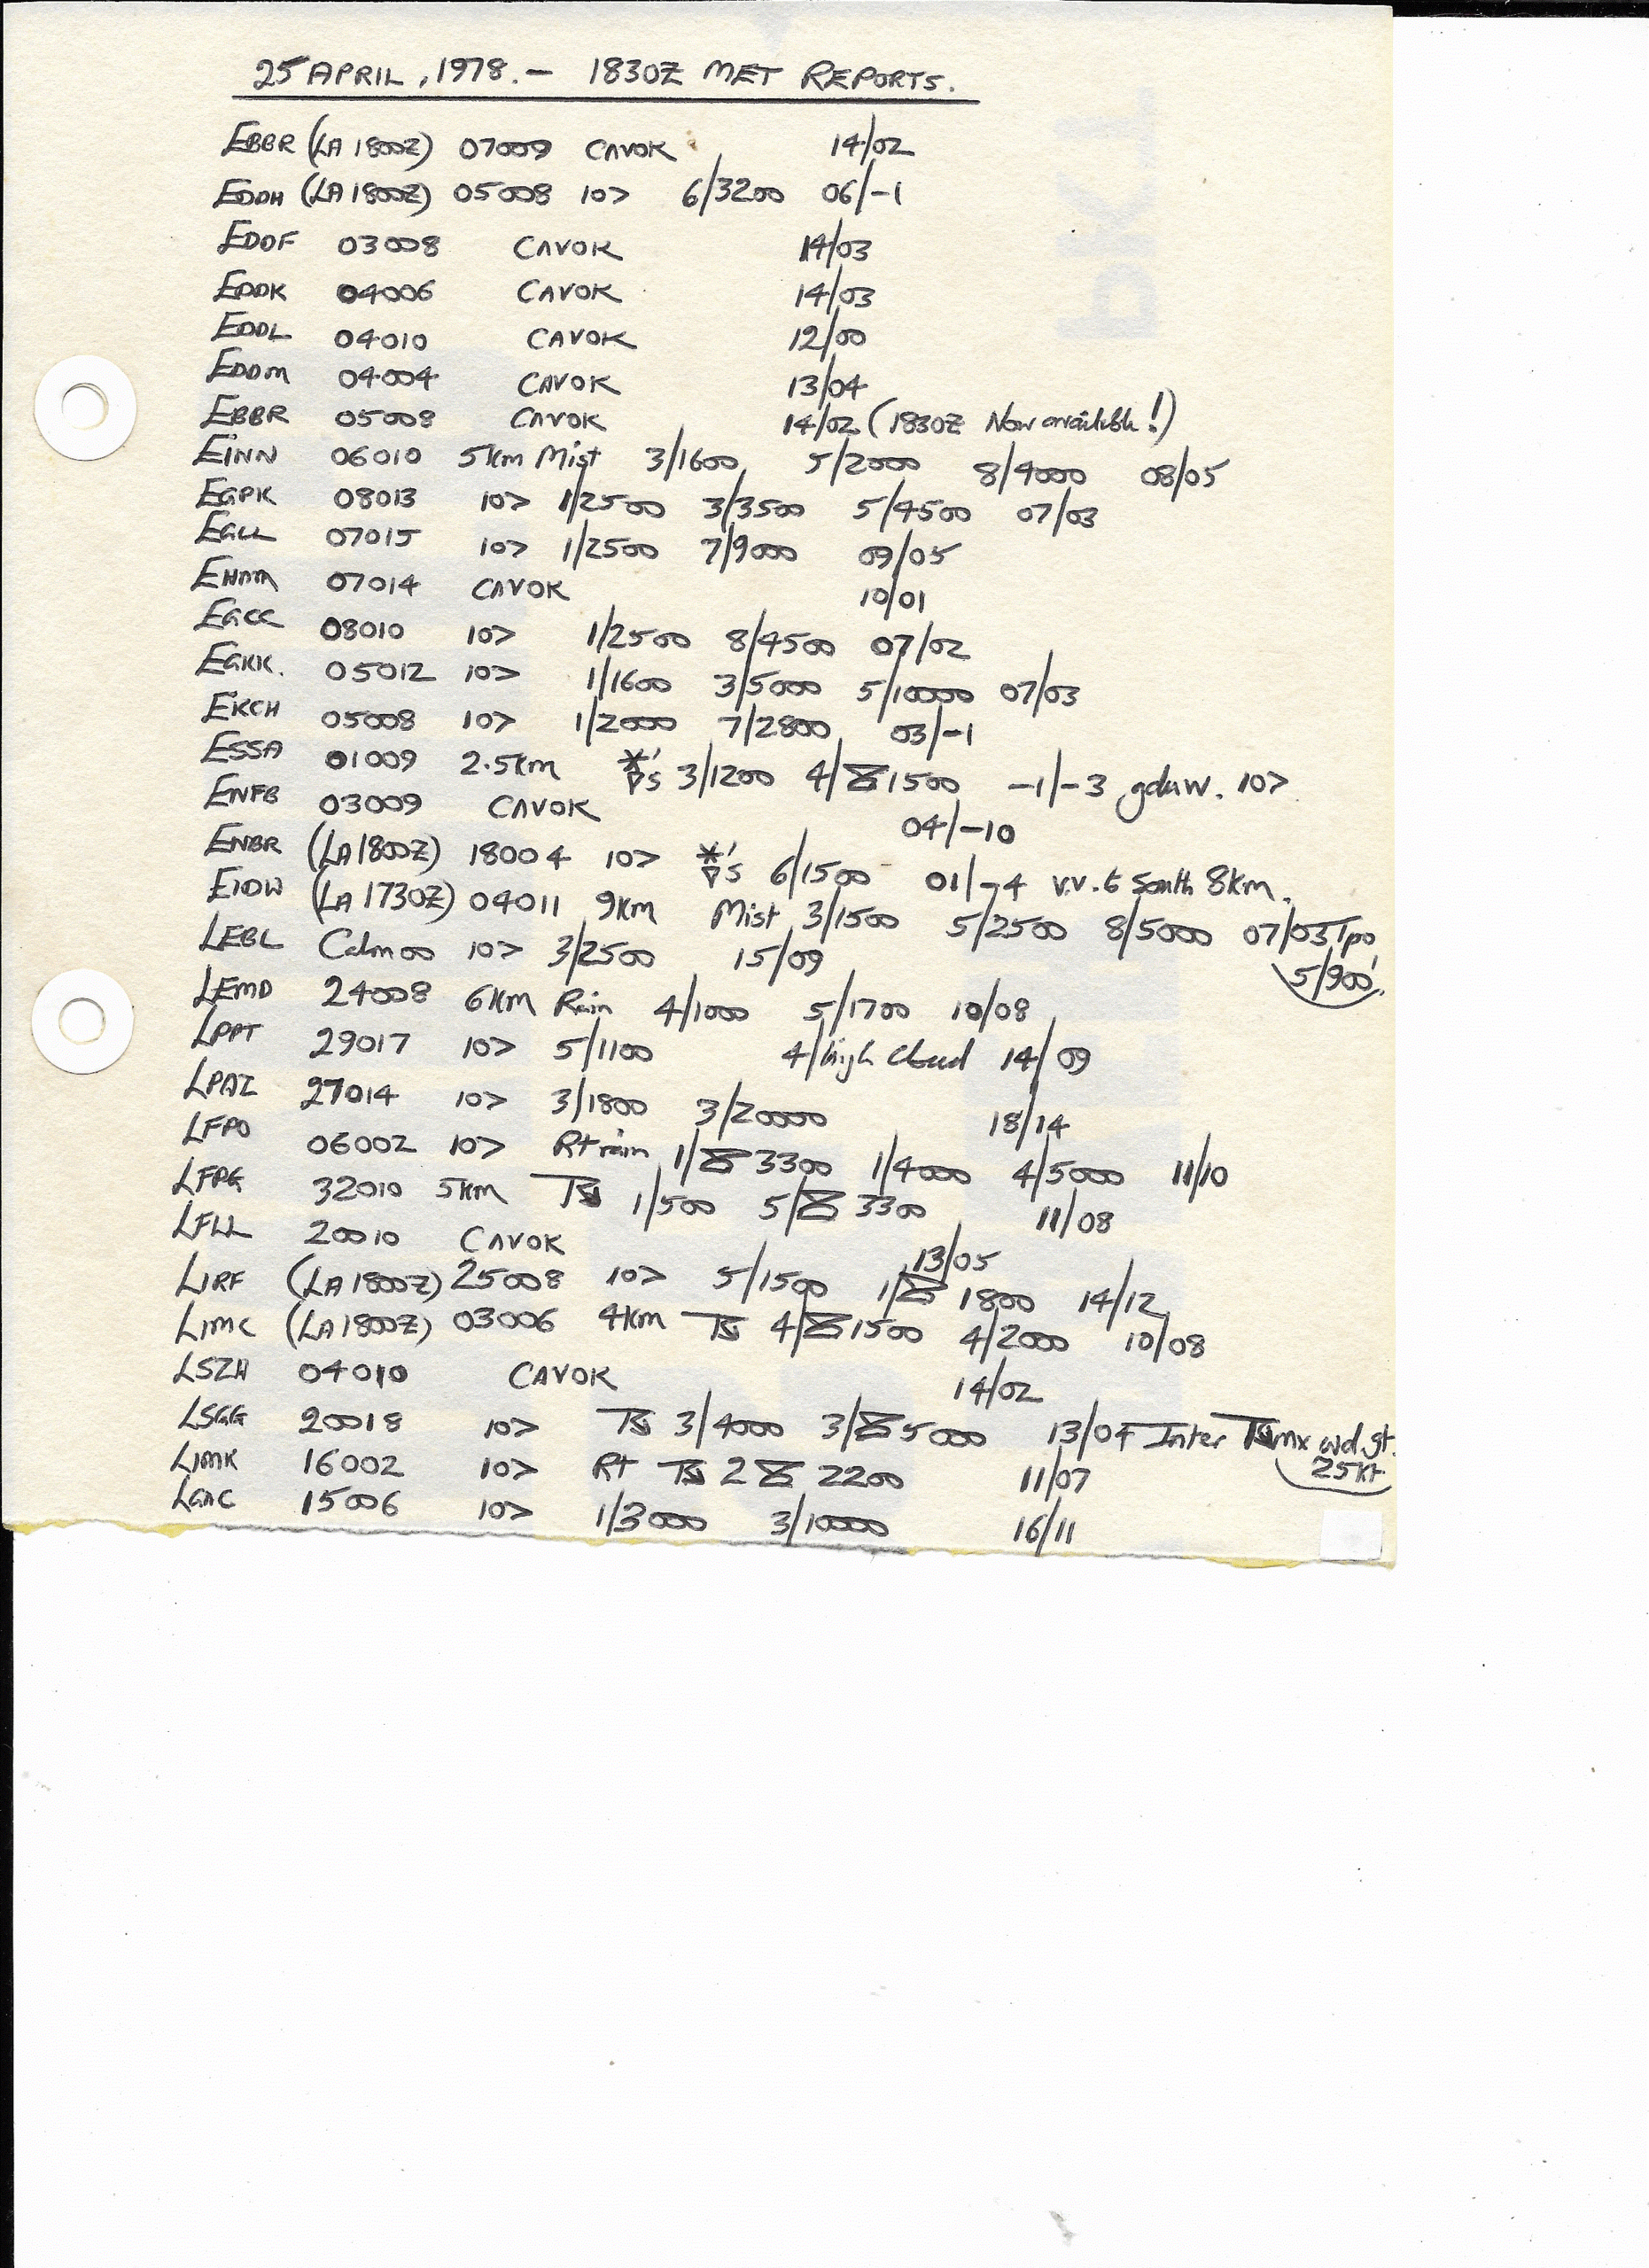 25 APRIL, 1978. - 1830Z MET REPORTS.
EBBR (LA 1800Z) 07009 CAVOK 14/02
EDDH (LA 1800Z) 05008 10> 6/3200 06/-1
EDDF 03008 CAVOK 14/03
EDDK 04006 CAVOK 14/03
EDDL 04010 CAVOK 12/00
EDDM 04004 CAVOK 13/04
EBBR 05008 CAVOK 14/02 (1830Z Now available!)
EINN 06010 5km Mist 3/1600 5/2000 8/4000 08/05
EGPK 08013 10> 1/2500 3/3500 5/4500 07/03
EGLL 07015 10> 1/2500 7/9000 09/05
EHAM 07014 CAVOK 10/01
EGCC 08010 10> 1/2500 8/4500 07/02
EGKK. 05012 10> 1/1600 3/5000 5/10000 07/03
EKCH 05008 10> 1/2000 7/2800 03/-1
ESSA 01009 2.5km 's 3/1200 4/ 1500 -1/-3 10>
ENFB 03009 CAVOK 04/-10
ENBR (LA 1800Z) 18004 10> 's 6/1500 01/-4 v.v. to South 8km.
EIDW (LA 1730Z) 04011 9km Mist 3/1500 5/2500 8/5000 07/03 Tpo
5/900'.
LEBL Calm 00 10> 3/2500 15/09
LEMD 24008 6km Rain 4/1000 5/1700 10/08
LPPT 29017 10> 5/1100 4/high cloud 14/09
LPAZ 27014 10> 3/1800 3/20000 18/14
LFPO 06002 10> Rt rain 1/ 3300 1/4000 4/5000 11/10
LFPG 32010 5km TS 1/500 5/ 3300 11/08
LFLL 20010 CAVOK 13/05
LIRF (LA 1800Z) 25008 10> 5/1500 1/ 1800 14/12
LIMC (LA 1800Z) 03006 4km TS 4/ 1500 4/2000 10/08
LSZH 04010 CAVOK 14/02
LSGG 20018 10> TS 3/4000 3/ 5000 13/04 Inter TS mx wd.gt.
25kt
LIMK 16002 10> Rt TS 2 2200 11/07
15006 10> 1/3000 3/10000 16/11